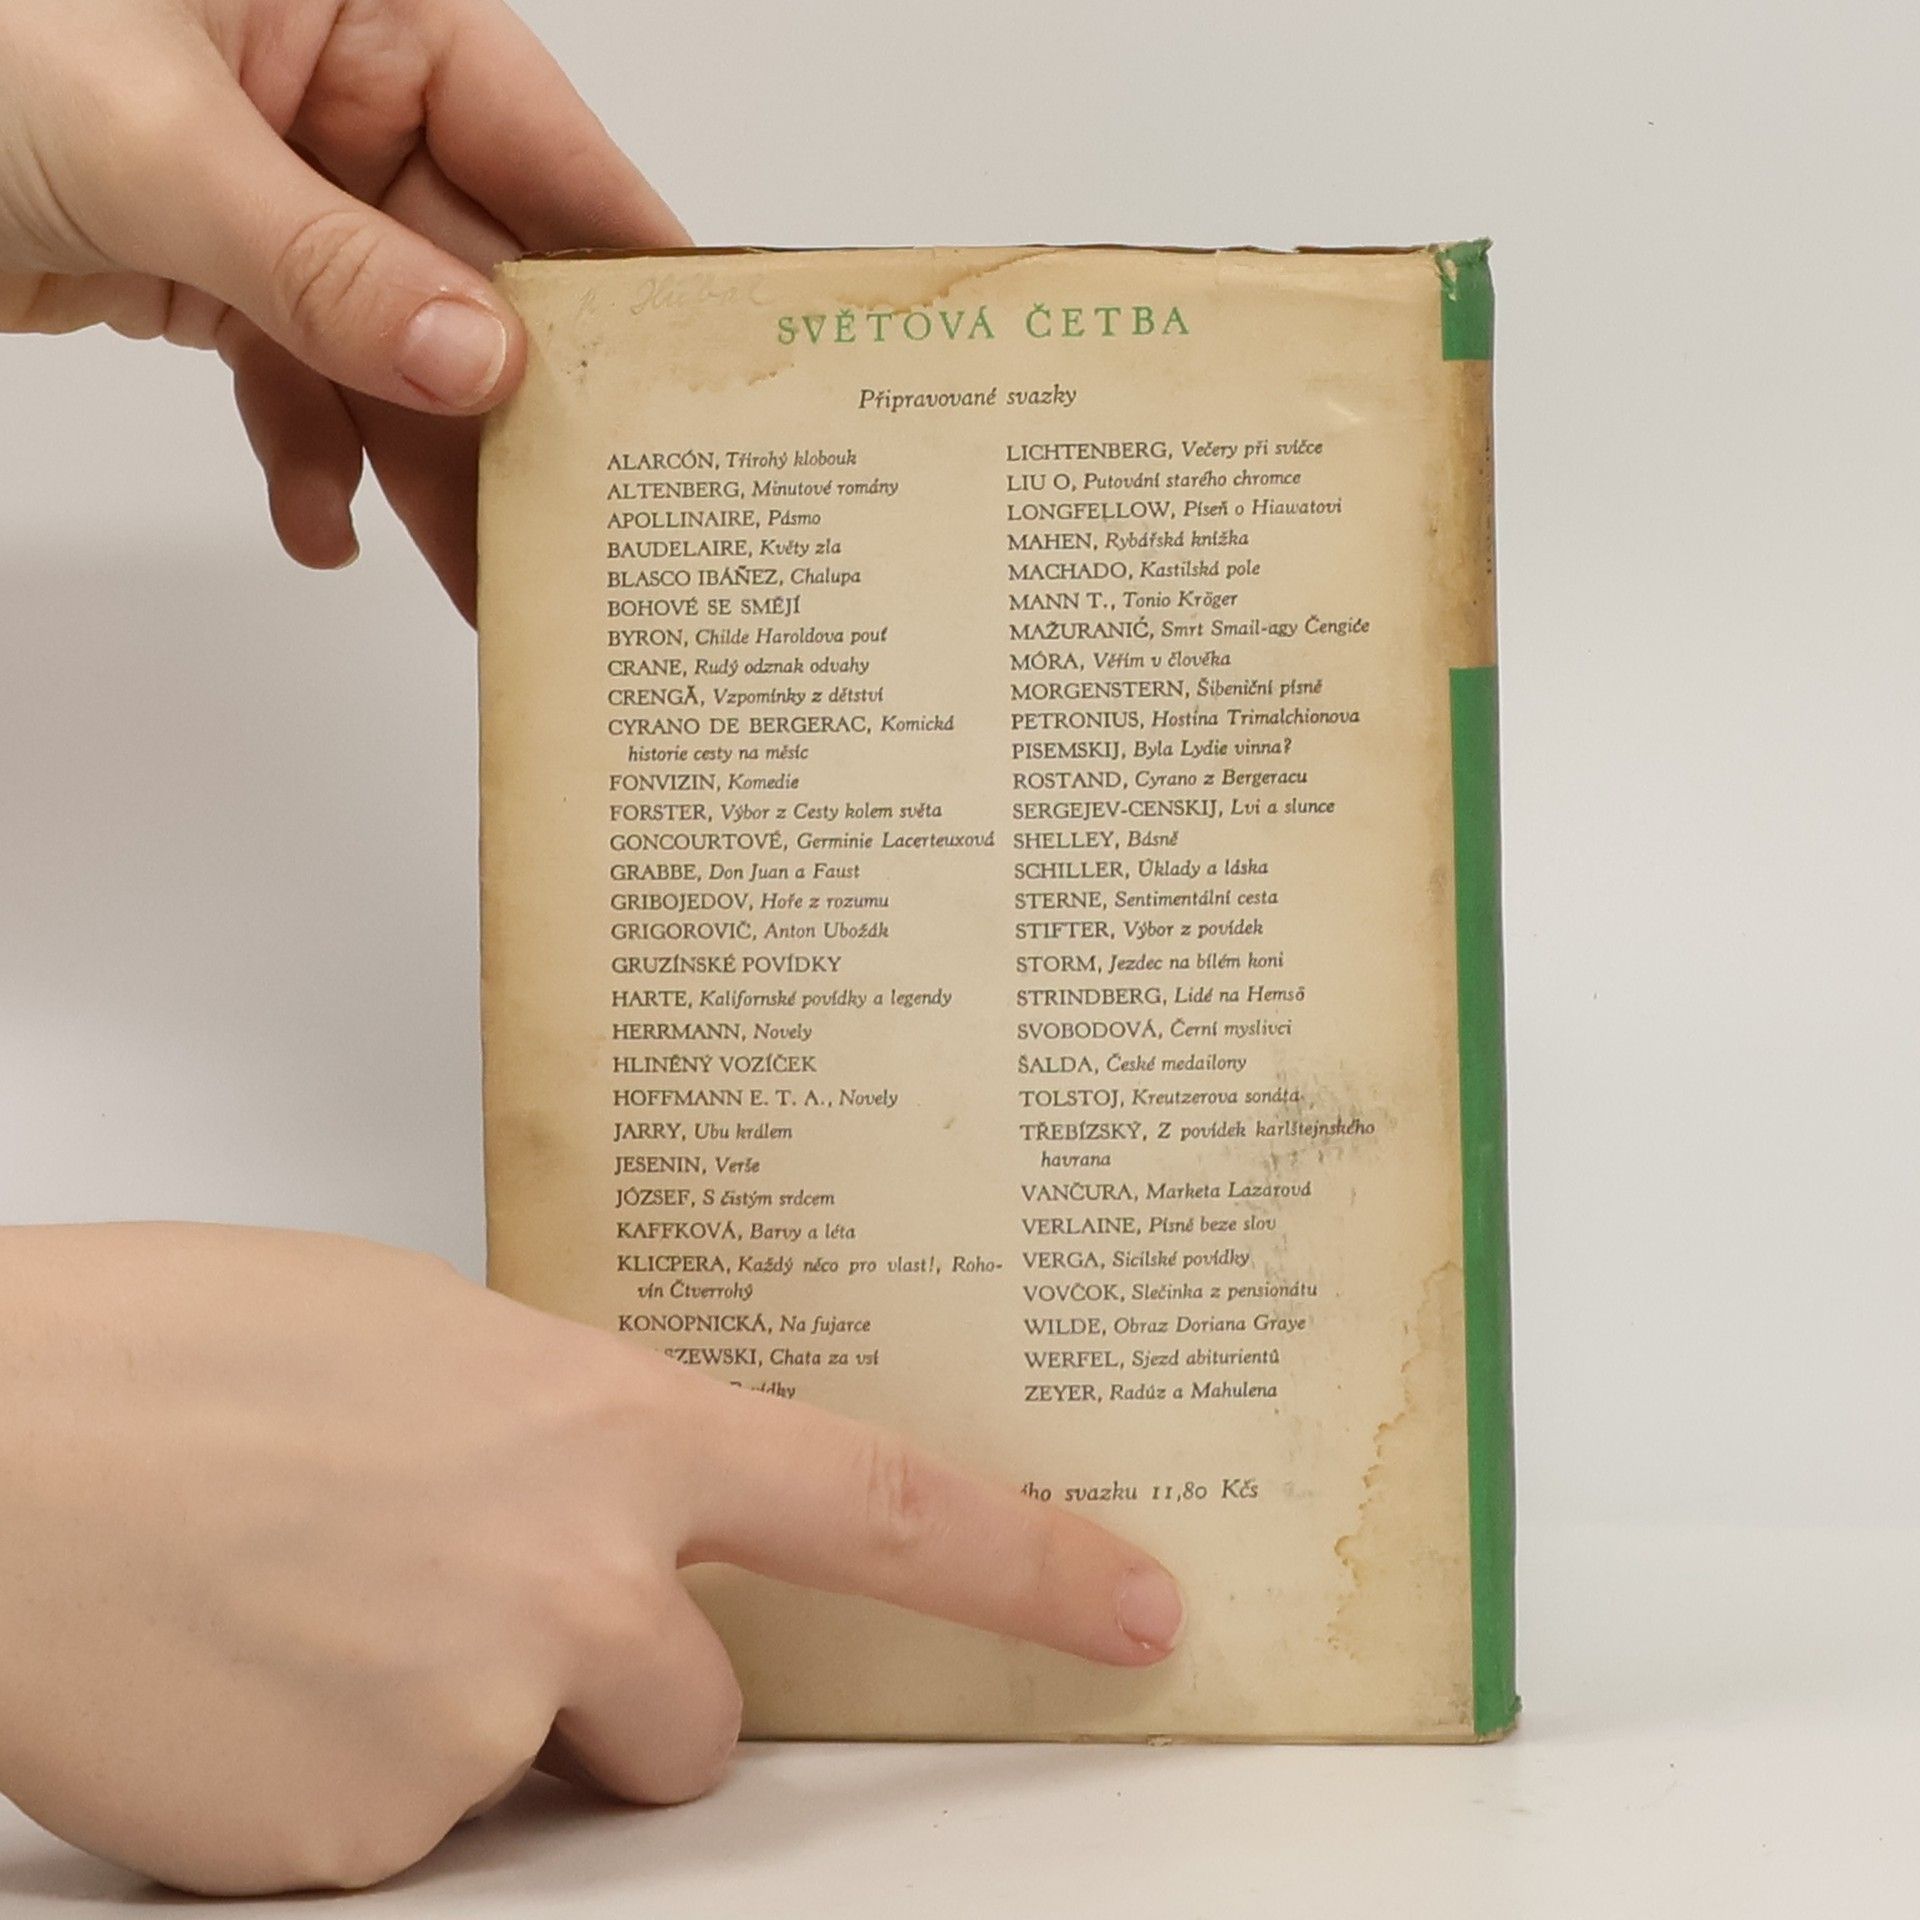 SVĚTOVÁ ČETBA
Připravované svazky
ALARCÓN, Třírohý klobouk
ALTENBERG, Minutové romány
APOLLINAIRE, Pásmo
BAUDELAIRE, Květy zla
BLASCO IBÁÑEZ, Chalupa
BOHOVÉ SE SMĚJÍ
BYRON, Childe Haroldova pouť
CRANE, Rudý odznak odvahy
CRENGĂ, Vzpomínky z dětství
CYRANO DE BERGERAC, Komická
historie cesty na měsíc
FONVIZIN, Komedie
FORSTER, Výbor z Cesty kolem světa
GONCOURTOVÉ, Germinie Lacerteuxová
GRABBE, Don Juan a Faust
GRIBOJEDOV, Hoře z rozumu
GRIGOROVIČ, Anton Ubožák
GRUZÍNSKÉ POVÍDKY
HARTE, Kalifornské povídky a legendy
HERRMANN, Novely
HLINĚNÝ VOZÍČEK
HOFFMANN E. T. A., Novely
JARRY, Ubu králem
JESENIN, Verše
JÓZSEF, S čistým srdcem
KAFFKOVÁ, Barvy a léta
KLICPERA, Každý něco pro vlast!, Roho-
vín Čtverrohý
KONOPNICKÁ, Na fujarce
SZEWSKI, Chata za vsí
LICHTENBERG, Večery při svíčce
LIU O, Putování starého chromce
LONGFELLOW, Píseň o Hiawatovi
MAHEN, Rybářská knížka
MACHADO, Kastilská pole
MANN T., Tonio Kröger
MAŽURANIĆ, Smrt Smail-agy Čengiće
MÓRA, Věřím v člověka
MORGENSTERN, Šibeniční písně
PETRONIUS, Hostina Trimalchionova
PISEMSKIJ, Byla Lydie vinna?
ROSTAND, Cyrano z Bergeracu
SERGEJEV-CENSKIJ, Lvi a slunce
SHELLEY, Básně
SCHILLER, Úklady a láska
STERNE, Sentimentální cesta
STIFTER, Výbor z povídek
STORM, Jezdec na bílém koni
STRINDBERG, Lidé na Hemsö
SVOBODOVÁ, Černí myslivci
ŠALDA, České medailony
TOLSTOJ, Kreutzerova sonáta
TŘEBÍZSKÝ, Z povídek karlštejnského
havrana
VANČURA, Marketa Lazarová
VERLAINE, Písně beze slov
VERGA, Sicilské povídky
VOVČOK, Slečinka z pensionátu
WILDE, Obraz Doriana Graye
WERFEL, Sjezd abiturientů
ZEYER, Radúz a Mahulena
svazku 11,80 Kčs